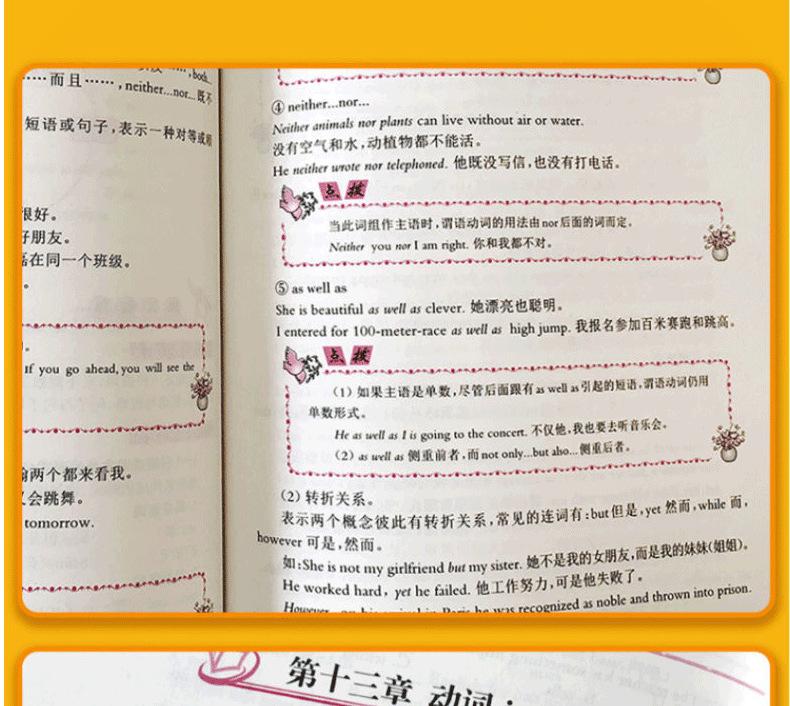 ……而且……,neither...nor...既不
短语或句子,表示一种对等或顺
很好。
好朋友。
在同一个班级。
。
If you go ahead, you will see the
两个都来看我。
会跳舞。
tomorrow.
④ neither...nor...
Neither animals nor plants can live without air or water.
没有空气和水,动植物都不能活。
He neither wrote nor telephoned. 他既没写信,也没有打电话。
点拨
当此词组作主语时,谓语动词的用法由nor后面的词而定。
Neither you nor I am right. 你和我都不对。
⑤ as well as
She is beautiful as well as clever. 她漂亮也聪明。
I entered for 100-meter-race as well as high jump. 我报名参加百米赛跑和跳高。
点拨
(1) 如果主语是单数,尽管后面跟有as well as引起的短语,谓语动词仍用
单数形式。
He as well as I is going to the concert. 不仅他,我也要去听音乐会。
(2) as well as 侧重前者,而not only...but also...侧重后者。
(2) 转折关系。
表示两个概念彼此有转折关系,常见的连词有:but但是,yet 然而,while 而,
however 可是,然而。
如:She is not my girlfriend but my sister. 她不是我的女朋友,而是我的妹妹(姐姐)。
He worked hard, yet he failed. 他工作努力,可是他失败了。
However, on his arrival in Paris he was recognized as noble and thrown into prison.
第十三章 动词